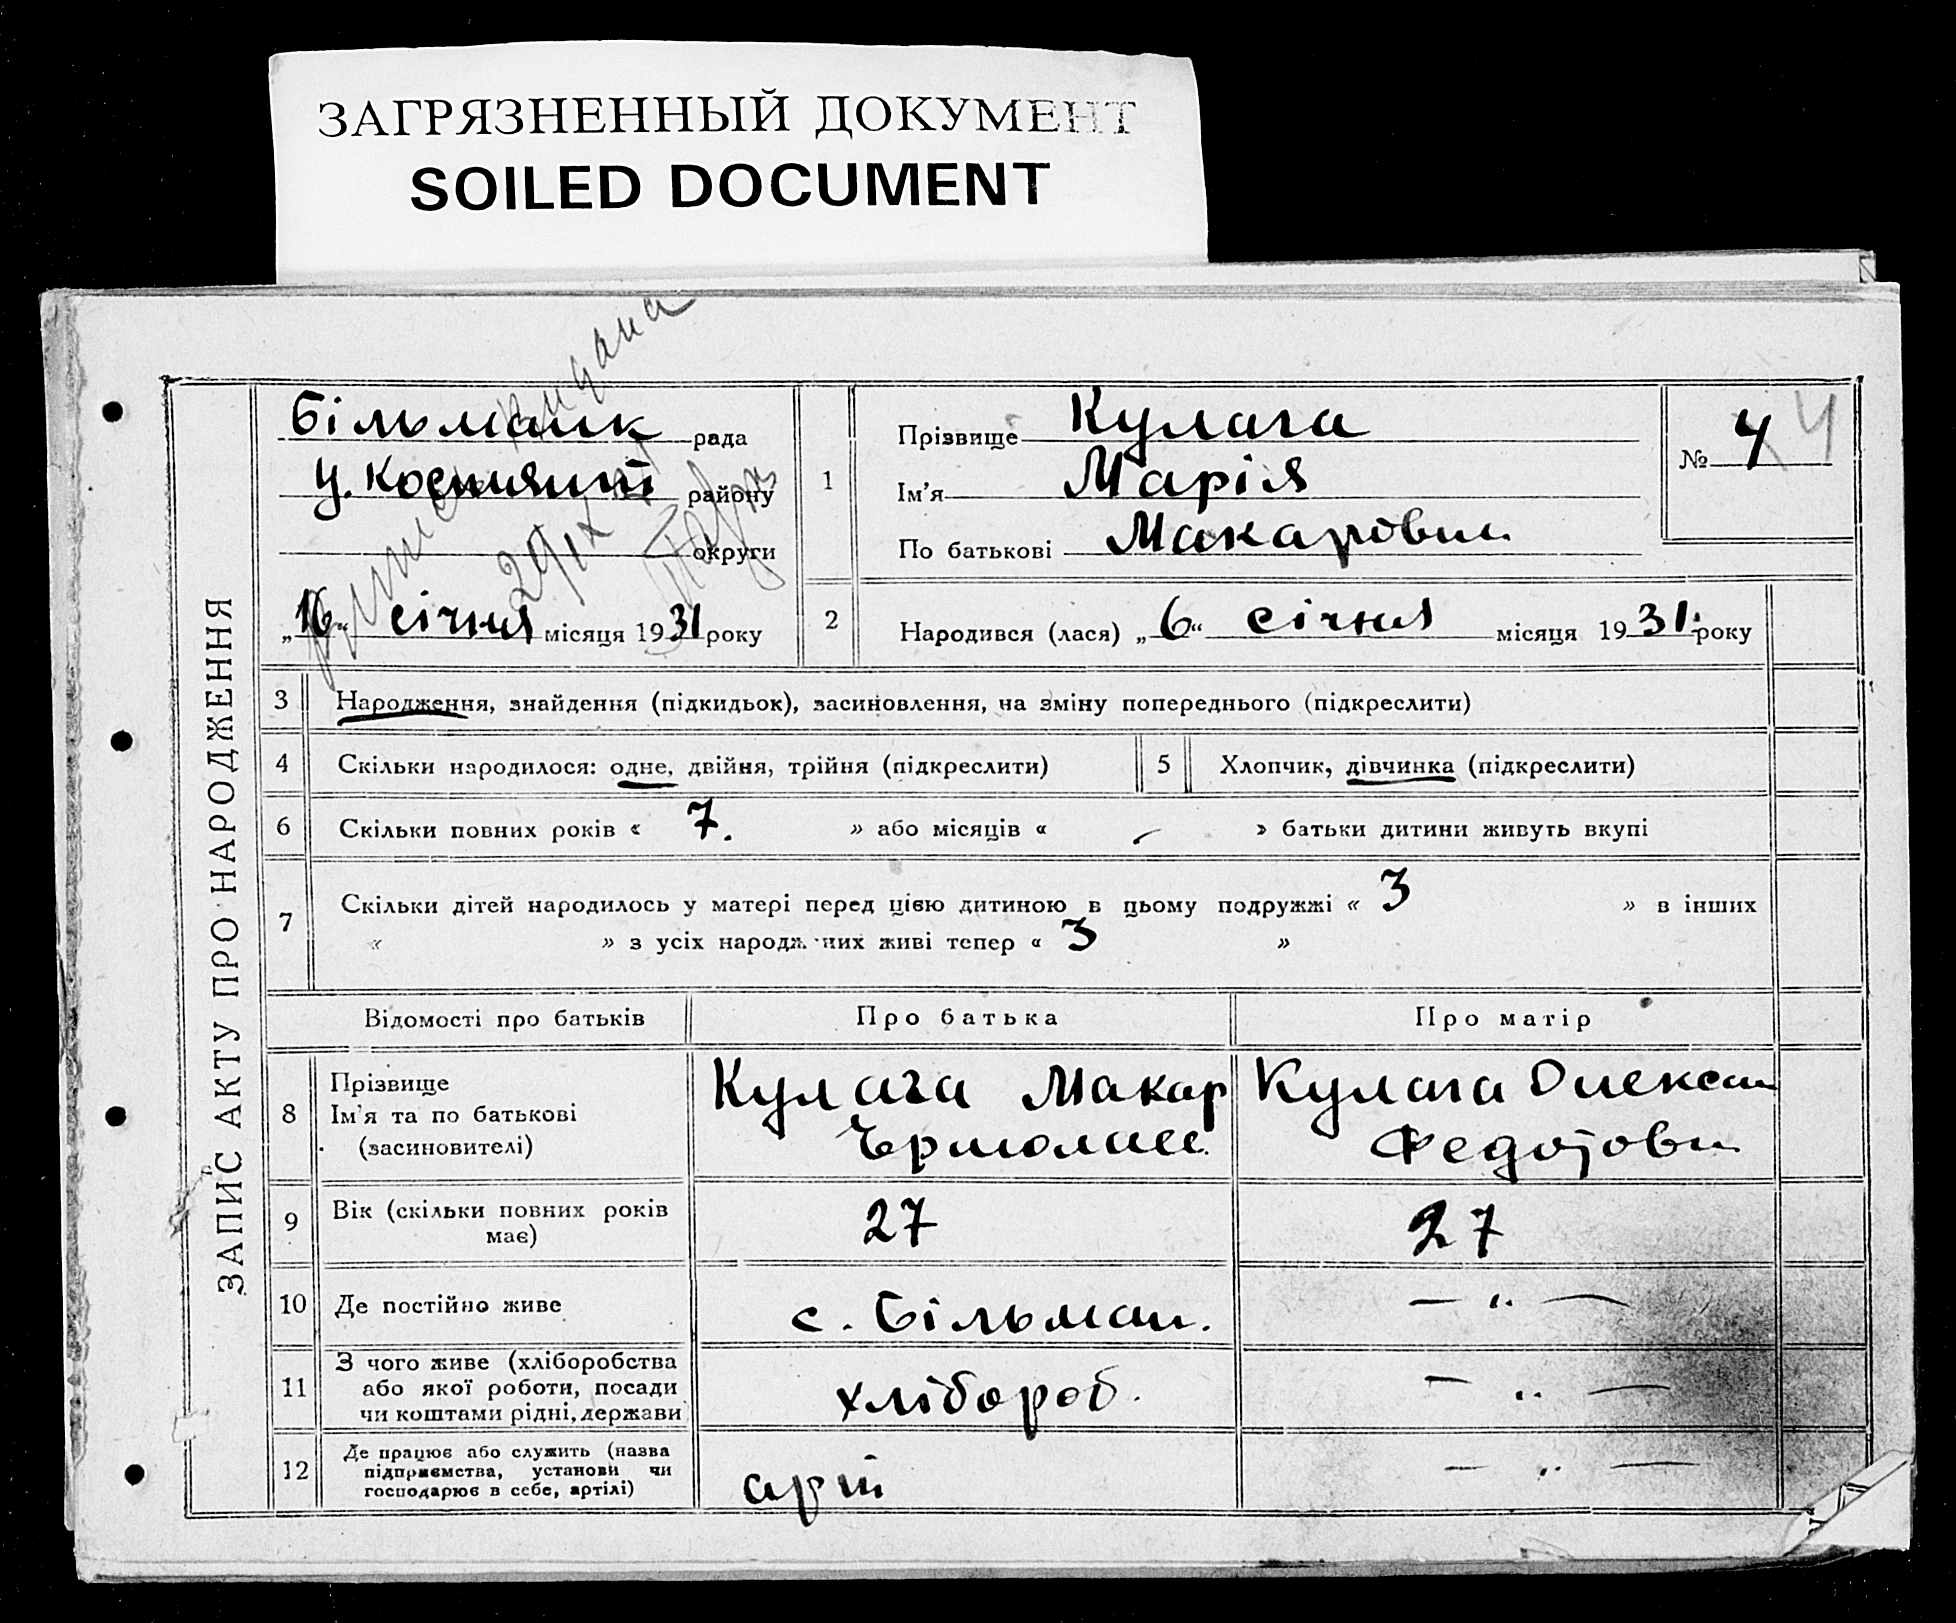 ЗАГРЯЗНЕННЫЙ ДОКУМЕНТ
SOILED DOCUMENT
ЗАПИС АКТУ ПРО НАРОДЖЕННЯ
Більманк рада
району
округи
„16“ січня місяця 1931 року
1
Прізвище Кулага
Ім'я Марія
По батькові Макаровн
№ 4 4
2
Народився (лася) „6“ січня місяця 1931 року
3 Народження, знайдення (підкидьок), засиновлення, на зміну попереднього (підкреслити)
4 Скільки народилося: одне, двійня, трійня (підкреслити)
5 Хлопчик, дівчинка (підкреслити)
6 Скільки повних років « 7. » або місяців « - » батьки дитини живуть вкупі
7 Скільки дітей народилось у матері перед цією дитиною в цьому подружжі « 3 » в інших
« » з усіх народжених живі тепер « 3 »
Відомості про батьків Про батька Про матір
8 Прізвище
Ім'я та по батькові
(засиновителі)
Кулага Макар
Єрмолаєв
Кулага Олексан
Федотовн
9 Вік (скільки повних років
має)
27 27
10 Де постійно живе с. Більман. — „ —
11 З чого живе (хліборобства
або якої роботи, посади
чи коштами рідні, держави
хлібороб. — „ —
12 Де працює або служить (назва
підприємства, установи чи
господарює в себе, артілі)
арт — „ —